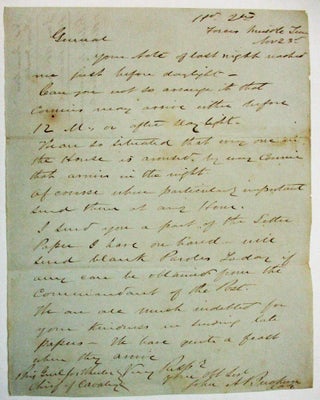 General
Your Note of last night reached
me just before daylight —
Can you not so arrange it that
Couriers may arrive either before
12 M. or after Daylight.
I am so situated that every one in
the House is aroused by every Courier
that arrives in the night
of course when particularly important
send them at any Hour.
I send you a part of the Letter
Paper I have on hand — will
send blank Paroles today if
any can be obtained from the
Commandant of the Post.
We are much indebted for
your kindness in sending late
papers — We have quite a feast
when they arrive
Very Resp
Chief of Cavalry